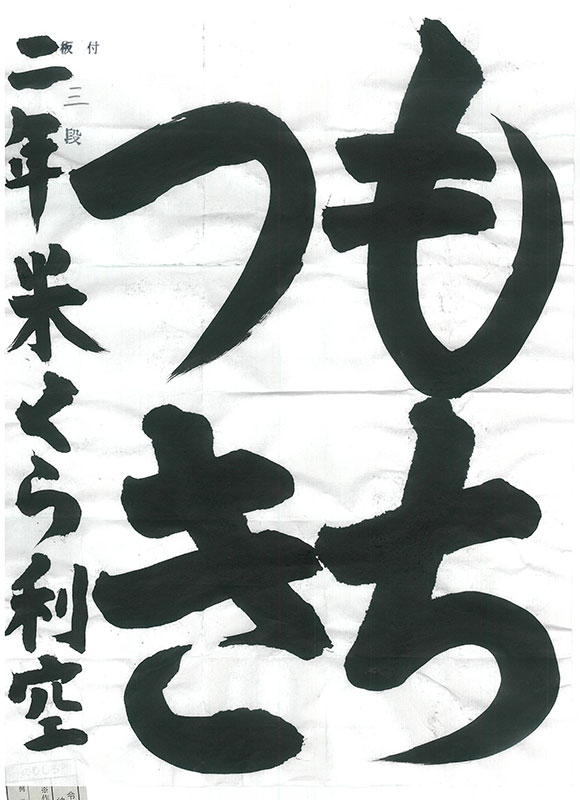 もち
つき
板付
三段
二年米くら利空